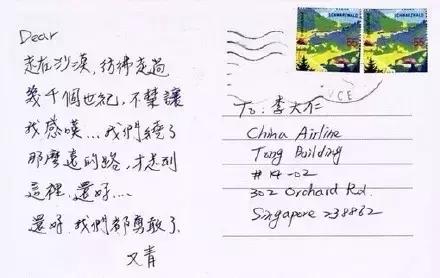 Dear
走在沙漠,彷彿走過
幾千個世紀,不禁讓
我感嘆...我們繞了
那麼遠的路,才走到
這裡,還好...
還好,我們都勇敢了.
又青
SCHWARZWALD
55
SCHWARZWALD
55
To: 李大仁
China Airline
Tong Building
#14-02
302 Orchard Rd.
Singapore 238862